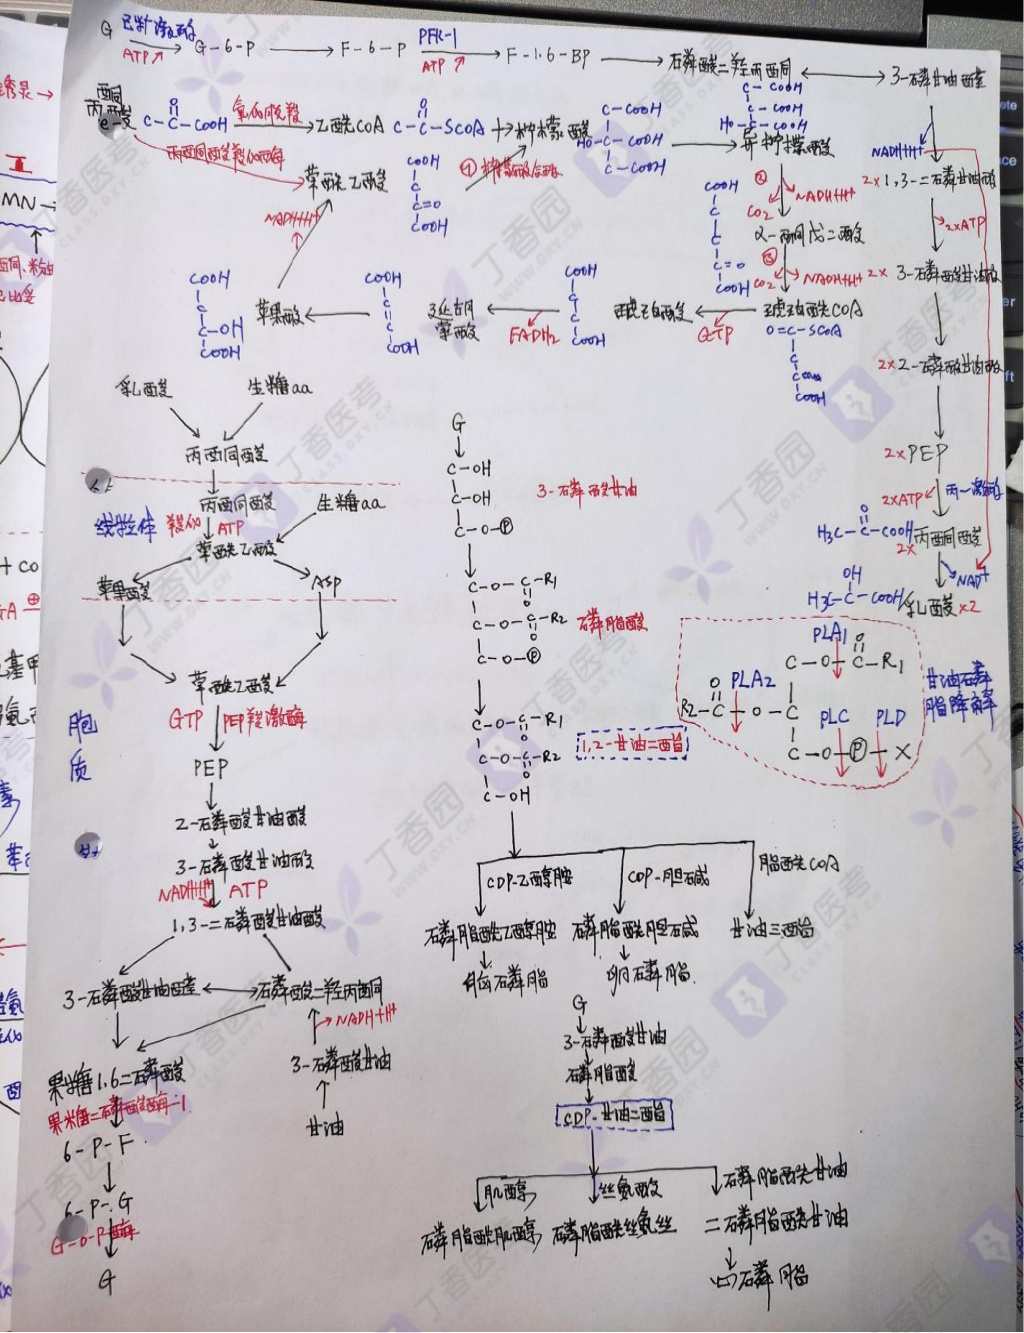 G 己糖激酶 G-6-P F-6-P PFK-1 F-1.6-BP 磷酸二羟丙酮 3-磷酸甘油醛
ATP↗ ATP↗
丙酮酸 C-C-COOH 氧化脱羧 乙酰COA C-C-SCOA 柠檬酸 C-COOH 异柠檬酸
O O HO-C-COOH C-COOH
丙酮酸羧化酶 ① 柠檬酸合酶
NADH+H+
草酰乙酸 COOH C C=O COOH
2×1,3-二磷酸甘油酸
NADH+H+ ② NADH+H+ CO2
α-酮戊二酸 COOH C C C=O COOH
2×ATP
③ NADH+H+ CO2
2× 3-磷酸甘油酸
苹果酸 延胡索酸 FADH2 琥珀酸 GTP 琥珀酰COA
COOH C C-OH COOH
O=C-SCOA
2×2-磷酸甘油酸
乳酸 生糖aa
丙酮酸
2×PEP
2×ATP
丙酮酸 生糖aa
线粒体 羧化 ATP
草酰乙酸
H3C-C-COOH 2× 丙酮酸
苹果酸 ASP
NAD+
OH
H3C-C-COOH 乳酸×2
草酰乙酸
GTP PEP羧激酶
胞质
PEP
2-磷酸甘油酸
3-磷酸甘油酸
NADH+H+ ATP
1,3-二磷酸甘油酸
3-磷酸甘油醛 磷酸二羟丙酮
NADH+H+
3-磷酸甘油
甘油
果糖1,6二磷酸
果糖二磷酸酶-1
6-P-F
6-P-G
G-6-P酶
G
G
C-OH
C-OH 3-磷酸甘油
C-O-Ⓟ
C-O-C-R1
C-O-C-R2 磷脂酸
C-O-Ⓟ
C-O-C-R1
C-O-C-R2 1,2-甘油二酯
C-OH
PLA1
C-O-C-R1
PLA2
R2-C-O-C 甘油磷脂降解
PLC PLD
C-O-Ⓟ-X
CDP-乙醇胺 CDP-胆碱 脂酰COA
磷脂酰乙醇胺 磷脂酰胆碱 甘油三酯
脑磷脂 卵磷脂
G
3-磷酸甘油
磷脂酸
CDP-甘油二酯
肌醇 丝氨酸 磷脂酰甘油
磷脂酰肌醇 磷脂酰丝氨丝 二磷脂酰甘油
心磷脂
MN
丁香园
丁香医考
WWW.DXY.CN
CLASS.DXY.CN